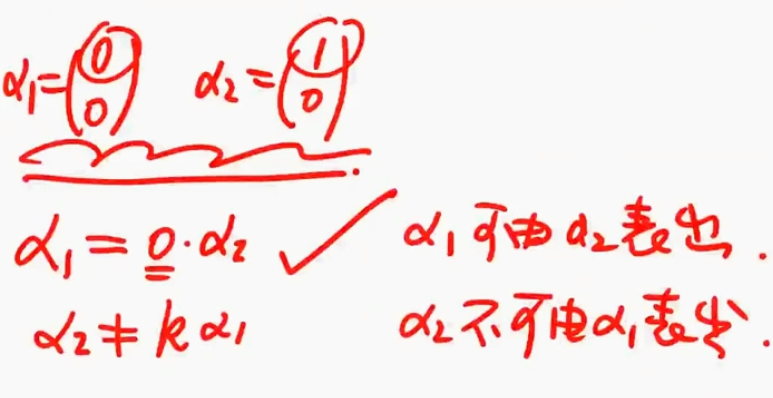 α₁=(0 0) α₂=(1 0)
α₁=0·α₂ ✓ α₁可由α₂表出.
α₂≠kα₁ α₂不可由α₁表出.